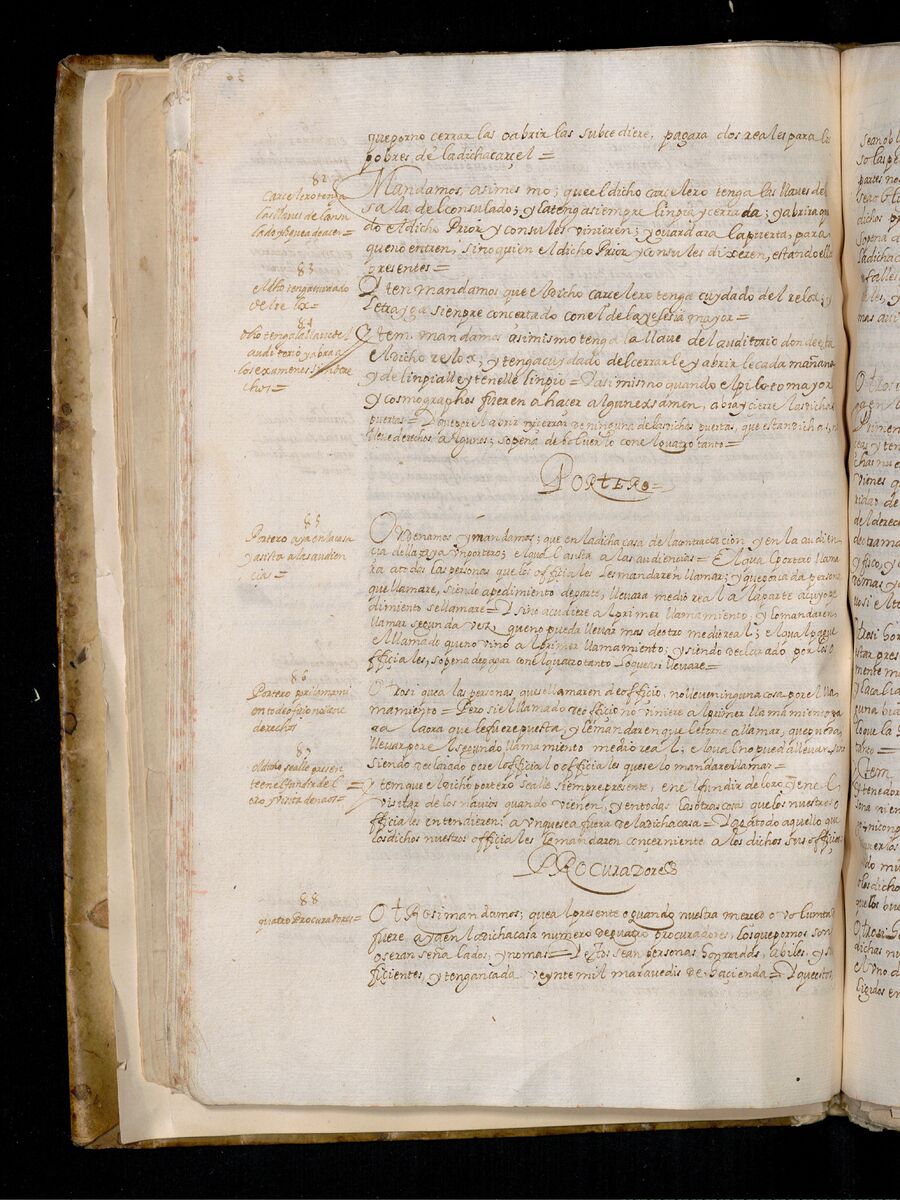 que por no cerrar las o abrir las subcediere, pagara dos reales para los
pobres de la dicha carcel =
82
Carcelero tenga
las llaves de la sa
Mandamos, asimesmo; que el dicho carcelero tenga las llaves del
sala del consulado; y la tenga siempre limpia y cerrada; y abrira qu
do el dicho Prior y consules vinieren; y guardara la puerta, para
que no entren, sino quien el dicho Prior y consules dixeren, estando ellos
presentes =
83
el dho tenga cuydado
del relox =
Yten mandamos que el dicho carcelero tenga cuydado del relox; y
le trayga siempre concertado con el de la yglesia mayor =
84
dho tenga la llave del
auditorio y abra a
los examenes sin dere
chos =
Ytem, mandamos asimismo tenga la llave del auditorio donde esta
el dicho relox; y tenga cuydado del cerrarle y abrirle cada mañana
y de limpialle y tenelle limpio = Y asi mismo quando el piloto mayor
y cosmographos fueren a hacer algun exsamen, abra y cierre las dichas
puertas = Y que por el abrir ni cerrar de ninguna de las dichas puertas, que estan dichas, no
lleve derechos algunos; so pena de bolverlo con el quatro tanto =
PORtERO =
85
Portero aya en la casa
y asista a las audien
cias =
Ordenamos y mandamos; que en la dicha casa de la contractacion y en la audien
cia della haya un portero; el qual asista a las audiencias = El qual portero llama
ra a todas las personas que los officiales les mandaren llamar; y que por cada persona
que llamare, siendo a pedimiento de parte, llevara medio real a la parte a cuyo pe
dimiento se llamare = Y si no acudiere al primer llamamiento, y lo mandaren
llamar segunda vez, que no pueda llevar mas de otro medio real; el qual pague
el llamado que no vino al primer llamamiento; y siendo declarado por los o
fficiales, so pena de pagar con el quatro tanto lo que asi llevare =
86
Portero por llamami
ento de oficio no lleve
derechos
Otrosi que a las personas, que se llamaren de officio, no lleve ninguna cosa por el lla
mamiento = Pero si el llamado de officio no viniere al primer llamamiento pa
ra la ora que le fuere puesta, y le mandaren que le torne a llamar, que pueda
llevar por el segundo llamamiento medio real; el qual no pueda llevar sino
siendo declarado por el official o officiales que se lo mandaren llamar =
87
el dicho se alle presen
te en el fundir del
oro y visita de naos =
Ytem que el dicho portero se alle siempre presente, en el fundir de l oro, y en el
visitar de los navios quando vienen, y en todas las otras cosas que los nuestros o
fficiales entendieren; aunque sea fuera de la dicha casa = Y para todo aquello que
los dichos nuestros officiales le mandaren concerniente a los dichos sus officios
PROCURADORES
88
quatro Procuradores =
OtROsi mandamos; que al presente o quando nuestra merced o voluntad
fuere, aya en la dicha casa numero de quatro procuradores, los que por nos
seran señalados, y no mas = Y estos sean personas honrradas, abiles, y su
ficientes, y tengan cada veynte mil maravedis de hacienda = Y que estos,